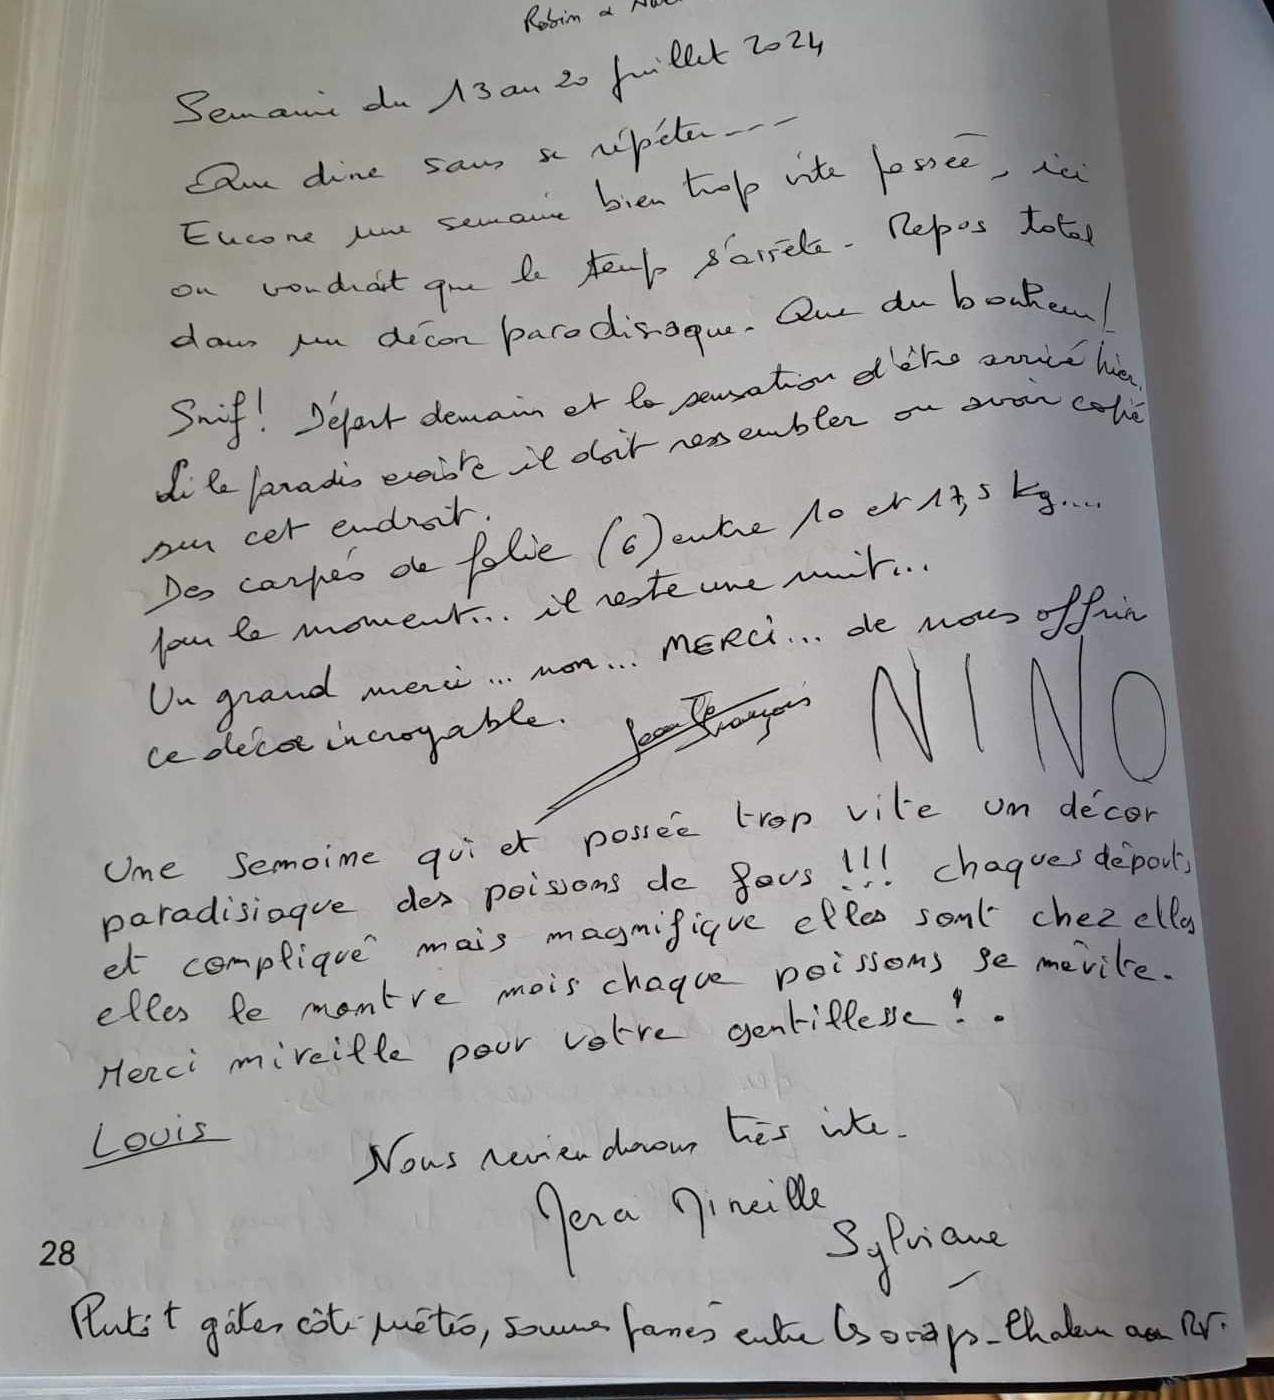 Robin &
Semaine du 13 au 20 Juillet 2024
Que dire sans se répéter---
Encore une semaine bien trop vite passée, ici
on voudrait que le temps s'arrête. Repos total
dans un décor paradisiaque. Que du bonheur!
Snif! Départ demain et la sensation d'être arrivé hier.
Si le paradis existe il doit ressembler ou avoir copié
sur cet endroit.
Des carpes de folie (6) entre 10 et 17,5 kg....
pour le moment... il reste une nuit...
Un grand merci... non... MERCI... de nous offrir
ce décor incroyable.
Jean François
NINO
Une semaine qui et passée trop vite un décor
paradisiaque des poissons de fous !!! chaques départs
et compliqué mais magnifique elles sont chez elles
elles le montre mais chaque poissons se mérite.
Merci mireille pour votre gentillesse! .
Louis
Nous reviendrons très vite.
Merci Mireille
Sylviane
28
Plutôt gâtés côté météo, sommes passés entre les orages. Chaleur au RV.